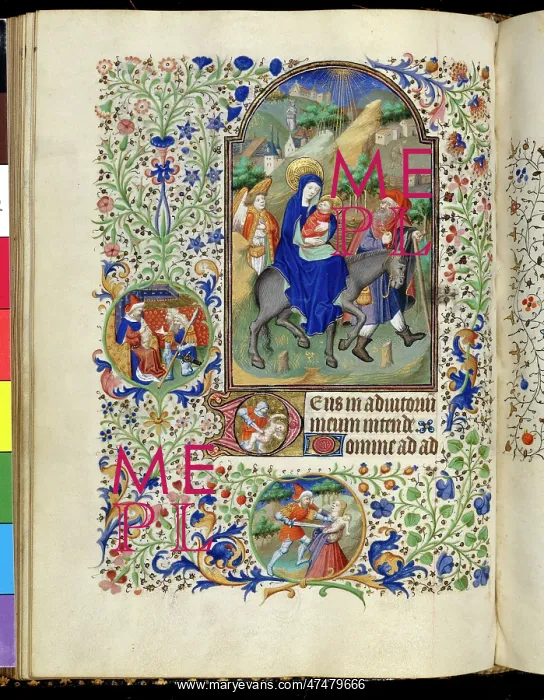 M E
P L
Deus in adiutoriu
meum intende
Domine ad ad
M E
P L
www.maryevans.com/47479666